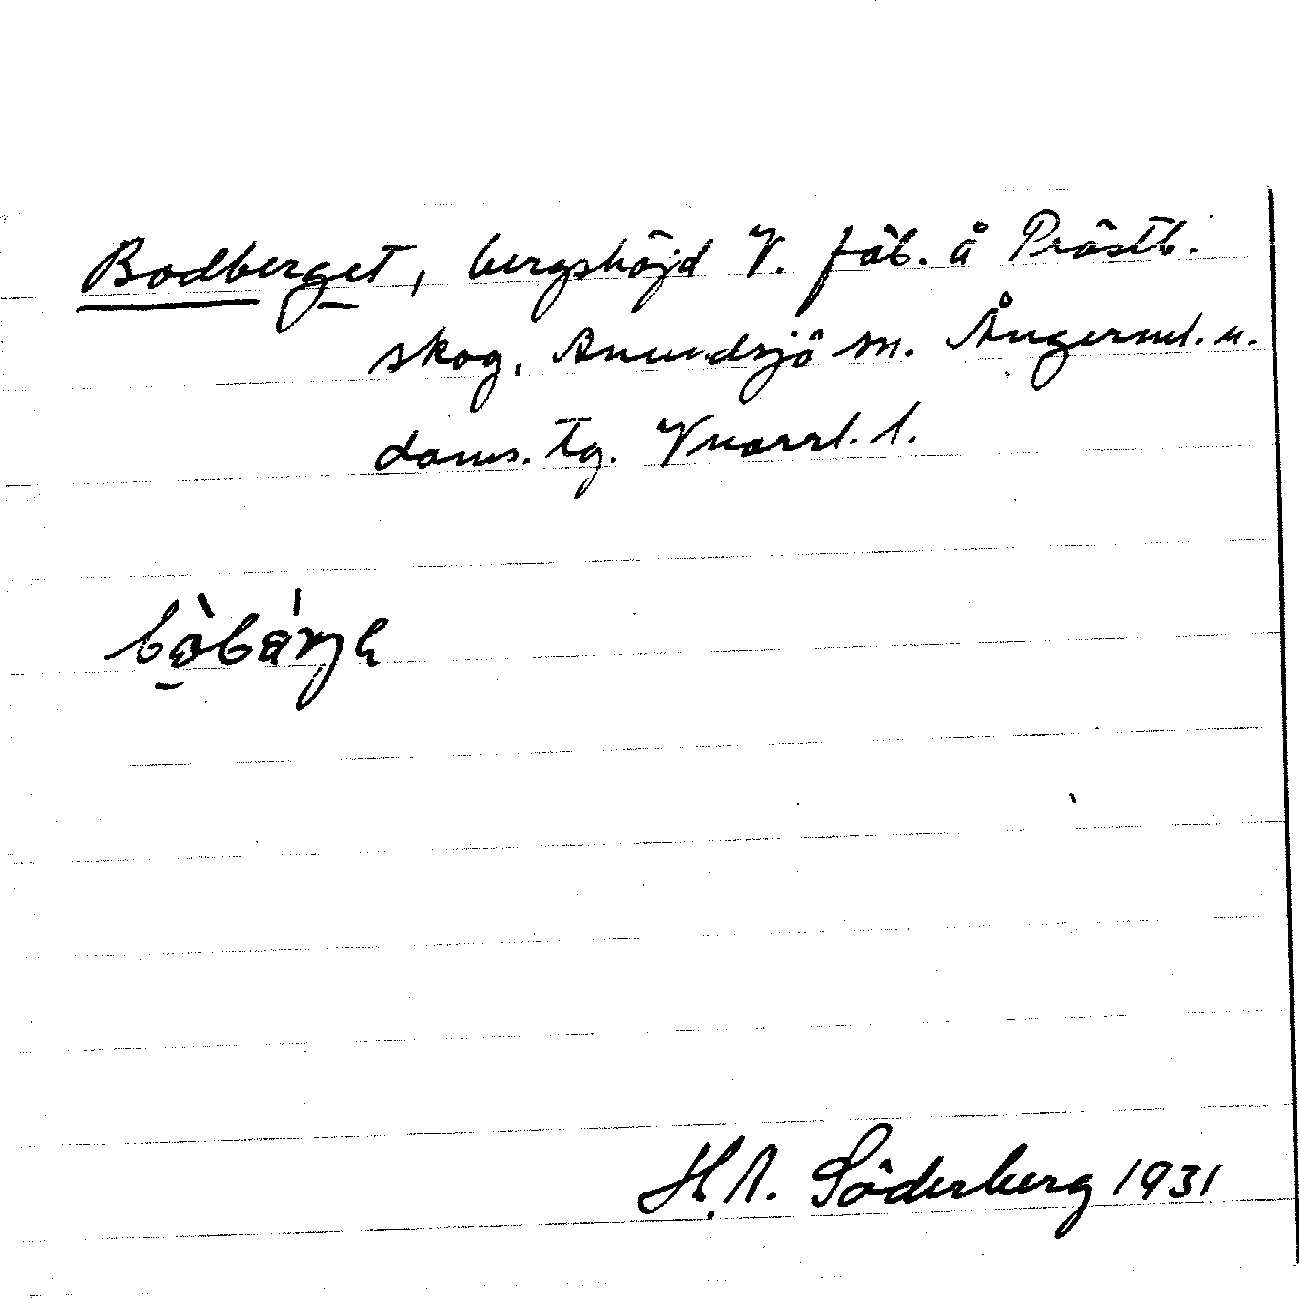 Bodberget, bergshöjd V. fäb. å Prästb.
skog, Anundsjö sn. Ångerml. n.
doms. tg. Vnorrl. l.
H. A. Söderberg 1931